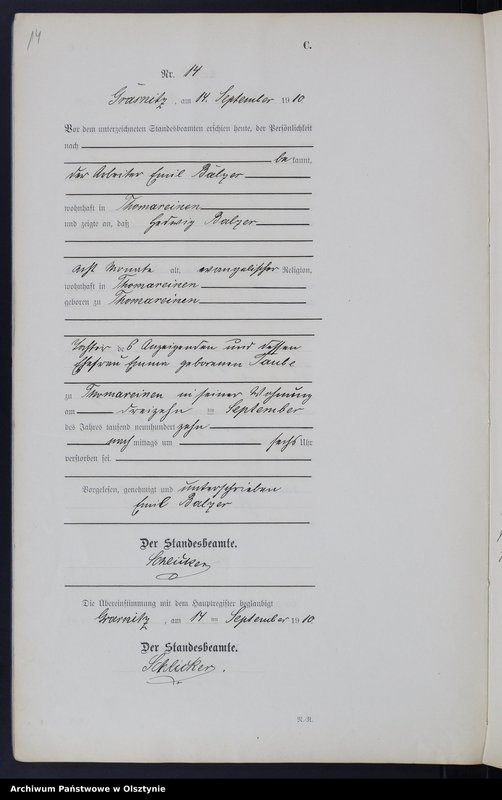 14
C.
Nr. 14
Grasnitz, am 14. September 1910
Vor dem unterzeichneten Standesbeamten erschien heute, der Persönlichkeit
nach
bekannt,
der Arbeiter Emil Balzer
wohnhaft in Thomareinen
und zeigte an, daß Hedwig Balzer
acht Monate alt, evangelischer Religion,
wohnhaft in Thomareinen
geboren zu Thomareinen
Tochter des Anzeigenden und dessen
Ehefrau Emma geborenen Taube
zu Thomareinen in seiner Wohnung
am dreizehn ten September
des Jahres tausend neunhundert zehn
nach mittags um sechs Uhr
verstorben sei.
Vorgelesen, genehmigt und unterschrieben
Emil Balzer
Der Standesbeamte.
Schlicker
Die Übereinstimmung mit dem Hauptregister beglaubigt
Grasnitz, am 14 ten September 1910
Der Standesbeamte.
Schlicker.
N.-R.
Archiwum Państwowe w Olsztynie